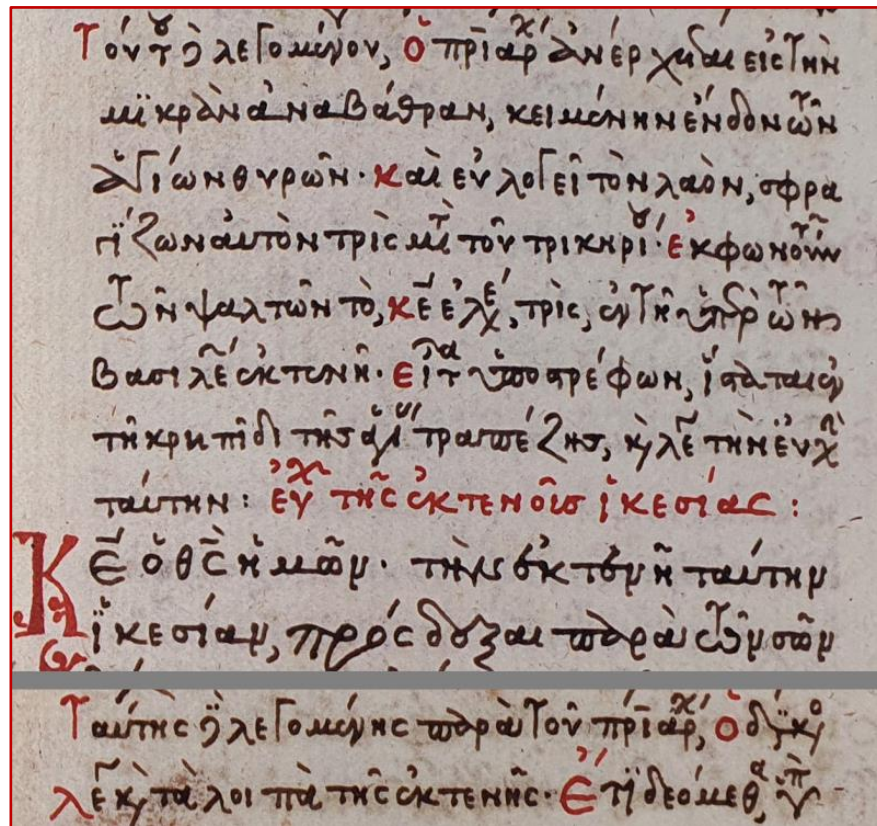 Τούτου δὲ λεγομένου, ὁ πριάρχ ἀνέρχεται εἰς τὴν
μϊκρὰν ἀναβάθραν, κειμένην ἔνδον τῶν
ἁγίων θυρῶν· καὶ εὐλογεῖ τὸν λαὸν, σφρα
γΐζων αὐτὸν τρὶς μετὰ τοῦ τρικηρίου· ἐκφωνούντων
τῶν ψαλτῶν τὸ, κε ἐλέ, τρὶς, ἐν τῇ ὑπὲρ τῶν
βασιλέ ἐκτενῆ· Εἶτα ὑποστρέφων, ἵσταται ἐν
τῇ κρηπίδι τῆς ἁγί τραπέζης, κ λέ τὴν εὐχὴ
ταύτην: εὐχ τῆς ἐκτενοῦς ἱκεσίας:
Κε ὁ θς ἡμῶν· τὴν ἐκτενῆ ταύτην
ἱκεσίαν, πρόσδεξαι παρὰ τῶν σῶν
Ταύτης δὲ λεγομένης παρὰ τοῦ πριάρχ, ὁ διάκο
λέ κ τὰ λοιπὰ τῆς ἐκτενῆς· Ἔτϊ δεόμεθα, ὑπ